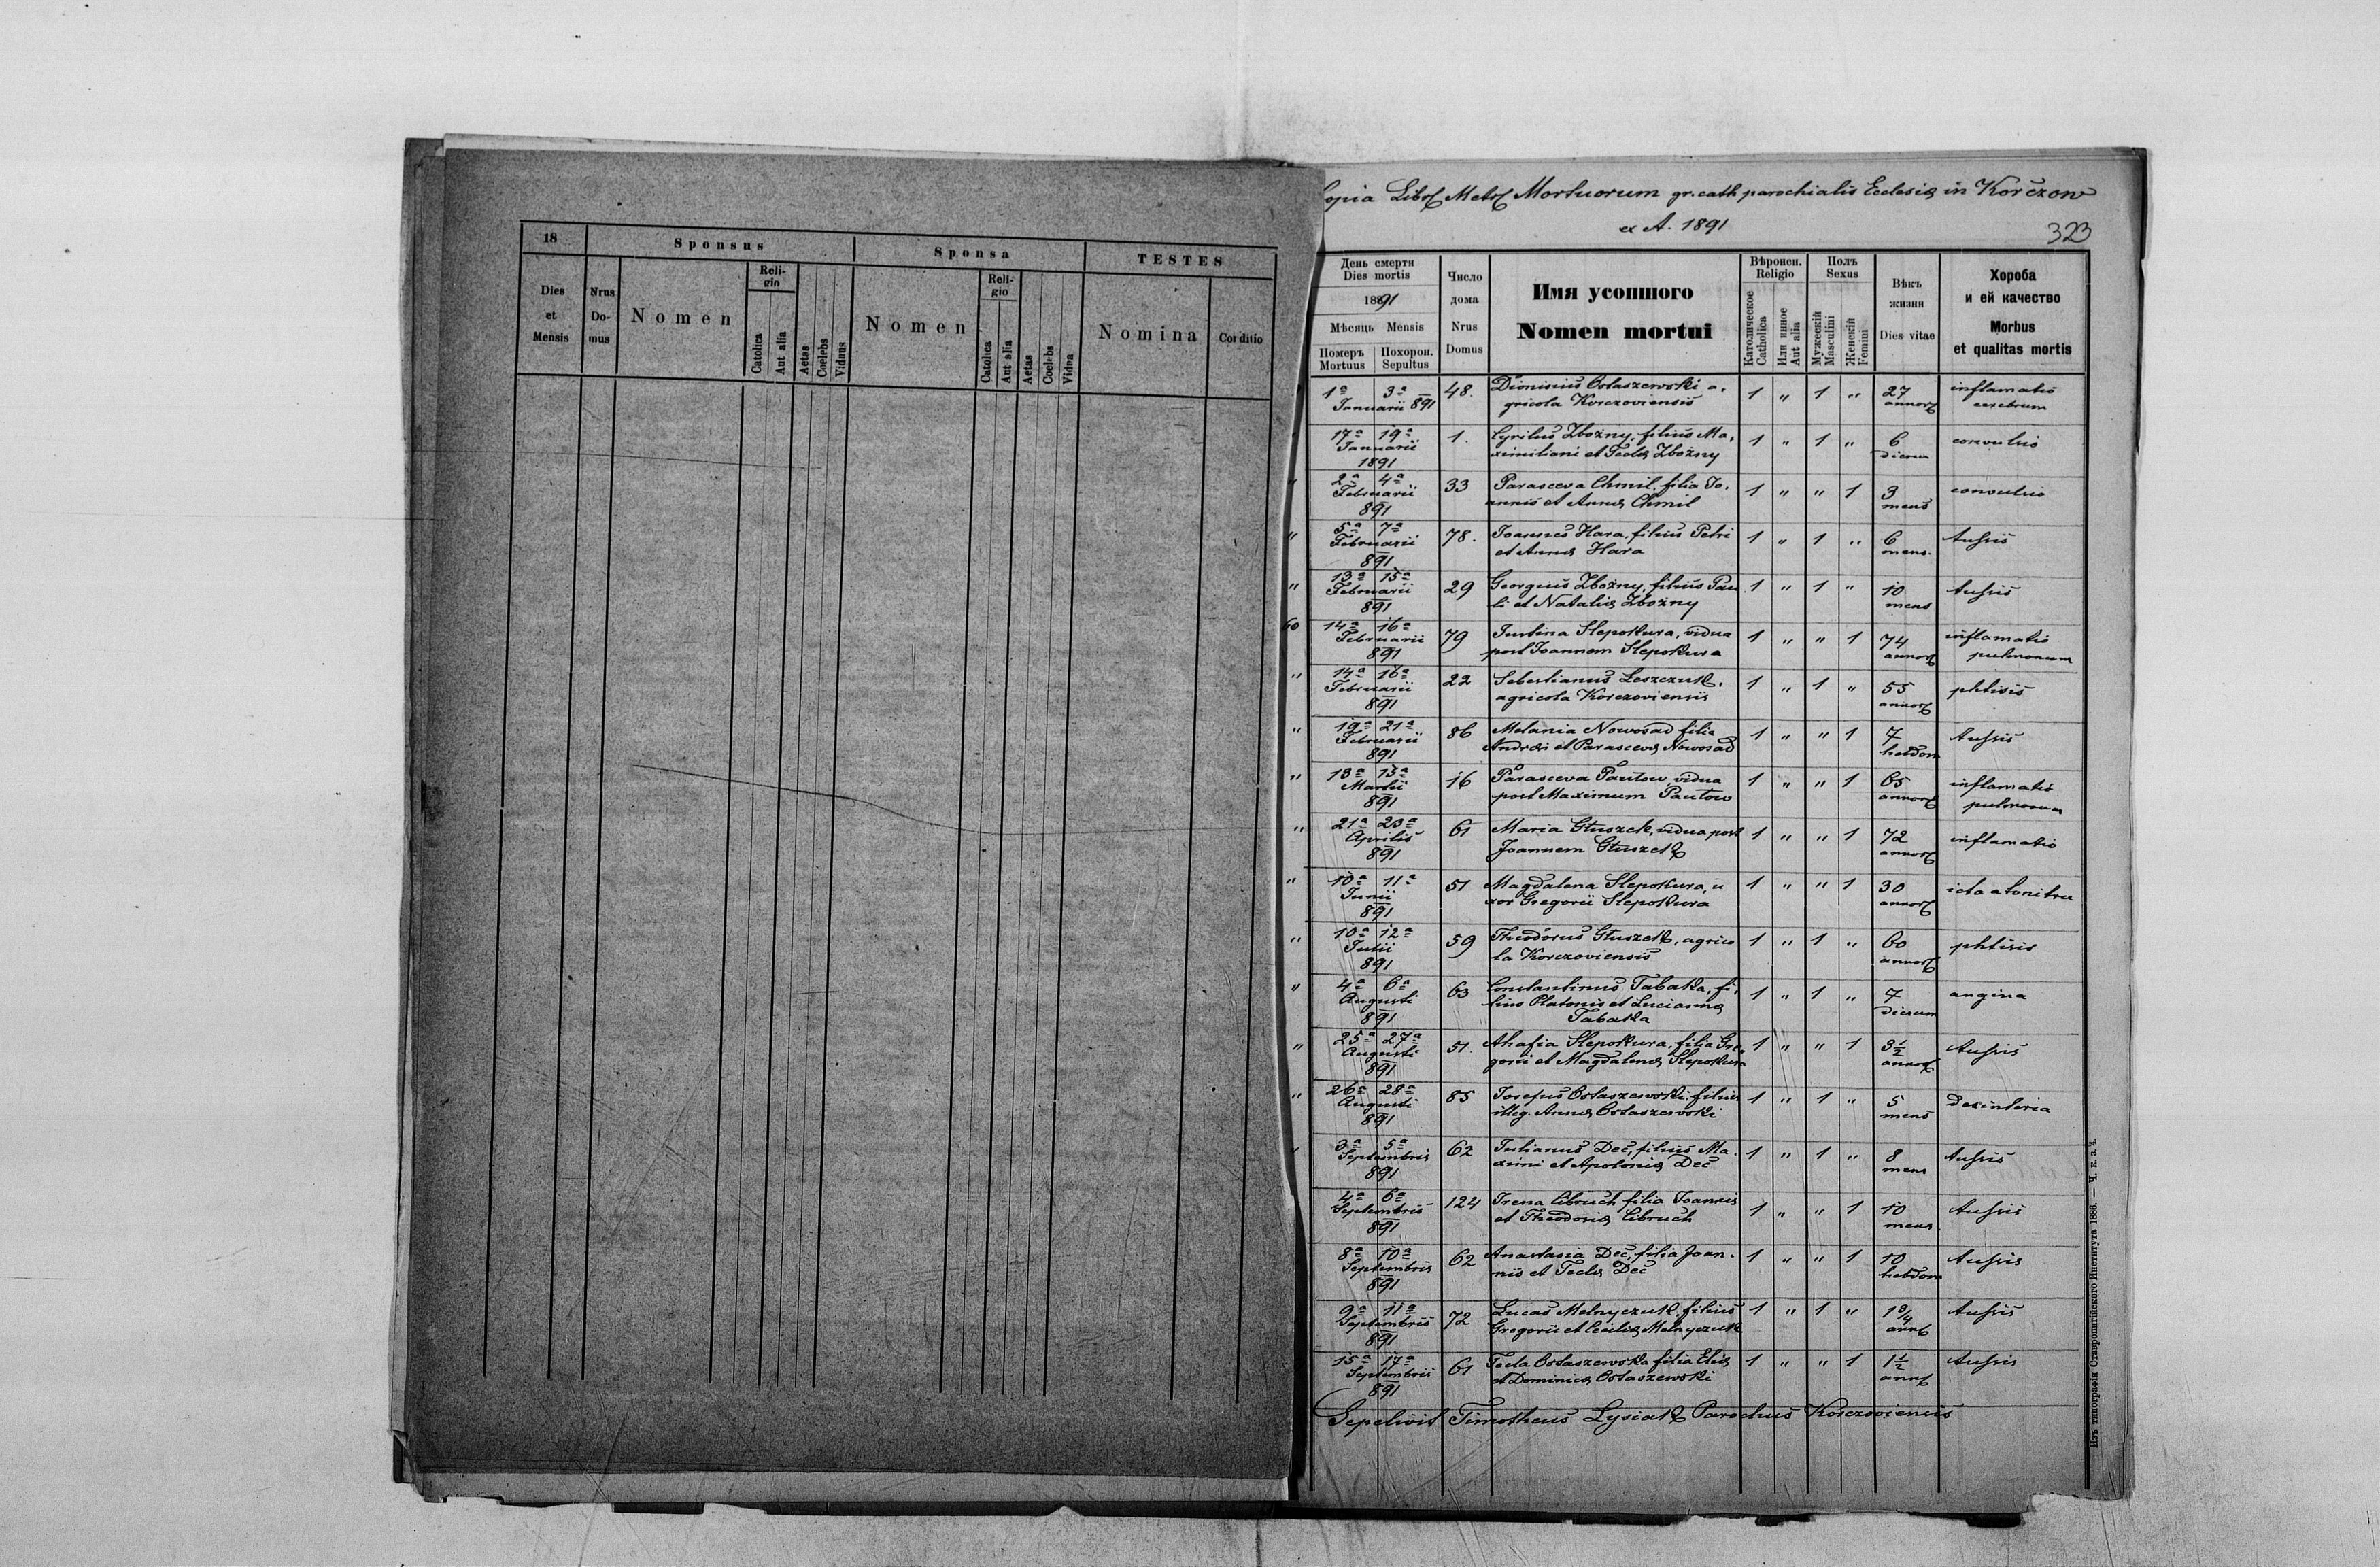 18
Sponsus
Sponsa
TESTES
Dies
et
Mensis
Nrus
Do-
mus
Nomen
Reli-
gin
Catolica
Aut alia
Aetas
Coelebs
Viduus
Nomen
Reli-
gio
Catolica
Aut alia
Aetas
Coelebs
Vidua
Nomina
Corditio
opia Libr Metr Mortuorum gr. cath parochialis Ecclesiæ in Korczow
ex A. 1891
323
День смерти
Dies mortis
1891
Мѣсяць Mensis
Померъ
Mortuus
Похорон.
Sepultus
Число
дома
Nrus
Domus
Имя усопшого
Nomen mortui
Вѣроисп.
Religio
Католическое
Catholica
Или инное
Aut alia
Полъ
Sexus
Мужескій
Masculini
Женскій
Femini
Вѣкъ
жизни
Dies vitae
Хороба
и ей качество
Morbus
et qualitas mortis
1ª 3ª 48. Dionisius Ostaszewski a, 1 " 1 " 27 inflamatio
Januarii 891 gricola Korczoviensis annor cerebrum
17ª 19ª 1. Cyrilus Zbożny, filius Ma, 1 " 1 " 6 convulsio
Januarii ximiliani et Teclæ Zbożny dierum
1891
2ª 4ª 33 Parasceva Chmil, filia Jo, 1 " " 1 3 convulsio
Februarii annis et Annæ Chmil mens
891
5ª 7ª 78. Joannes Hara, filius Petri 1 " 1 " 6 tussis
Februarii et Annæ Hara mens.
891
13ª 15ª 29 Georgius Zbożny, filius Pau 1 " 1 " 10 tussis
Februarii li et Nataliæ Zbożny mens
891
14ª 16ª 79 Justina Slepokura, vidua 1 " " 1 74 inflamatio
Februarii post Joannem Slepokura annor pulmonum
891
14ª 16ª 22 Sebestianus Leszczuk, 1 " 1 " 55 phtisis
Februarii agricola Korczoviensis annor
891
19ª 21ª 86 Melania Nowosad filia 1 " " 1 7 tussis
Februarii Andreæ et Parascevæ Nowosad hebdom
891
13ª 15ª 16 Parasceva Pautow, vidua 1 " " 1 65 inflamatio
Martii post Maximum Pautow annor pulmonum
891
21ª 23ª 61 Maria Głuszek, vidua post 1 " " 1 72 inflamatio
Aprilis Joannem Głuszek annor
891
10ª 11ª 51 Magdalena Slepokura, u 1 " " 1 30 icta a tonitru
Junii xor Gregorii Slepokura annor
891
10ª 12ª 59 Theodorus Głuszek, agrico 1 " 1 " 60 phtisis
Julii la Korczoviensis annor
891
4ª 6ª 63 Constantinus Tabaka, fi, 1 " 1 " 7 angina
Augusti lius Platonis et Luciannæ dierum
891 Tabaka
25ª 27ª 51. Ahafia Slepokura, filia Gre, 1 " " 1 3½ tussis
Augusti gorii et Magdalenæ Slepokura annor
891
26ª 28ª 85 Josefus Ostaszewski, filius 1 " 1 " 5 desinteria
Augusti illeg. Annæ Ostaszewski mens
891
3ª 5ª 62 Julianus Deć, filius Ma. 1 " 1 " 8 tussis
Septembris ximi et Apoloniæ Deć mens
891
4ª 6ª 124 Irena Cibruch, filia Joannis 1 " " 1 10 tussis
Septembris et Theodoriæ Cibruch mens
891
8ª 10ª 62 Anastasia Deć, filia Joan. 1 " " 1 10 tussis
Septembris nis et Teclæ Deć hebdom
891
9ª 11ª 72 Lucas Melnyczuk, filius 1 " 1 " 1¾ tussis
Septembris Gregorii et Ceciliæ Melnyczuk
891
15ª 17ª 61 Tecla Ostaszewska filia Eliæ 1 " " 1 1½ tussis
Septembris et Dominicæ Ostaszewski
891
Sepelivit Timotheus Lysiak Parochus Korczoviensis
Изъ типографіи Ставропигійского Института 1886. — Ч. к. з. 4.